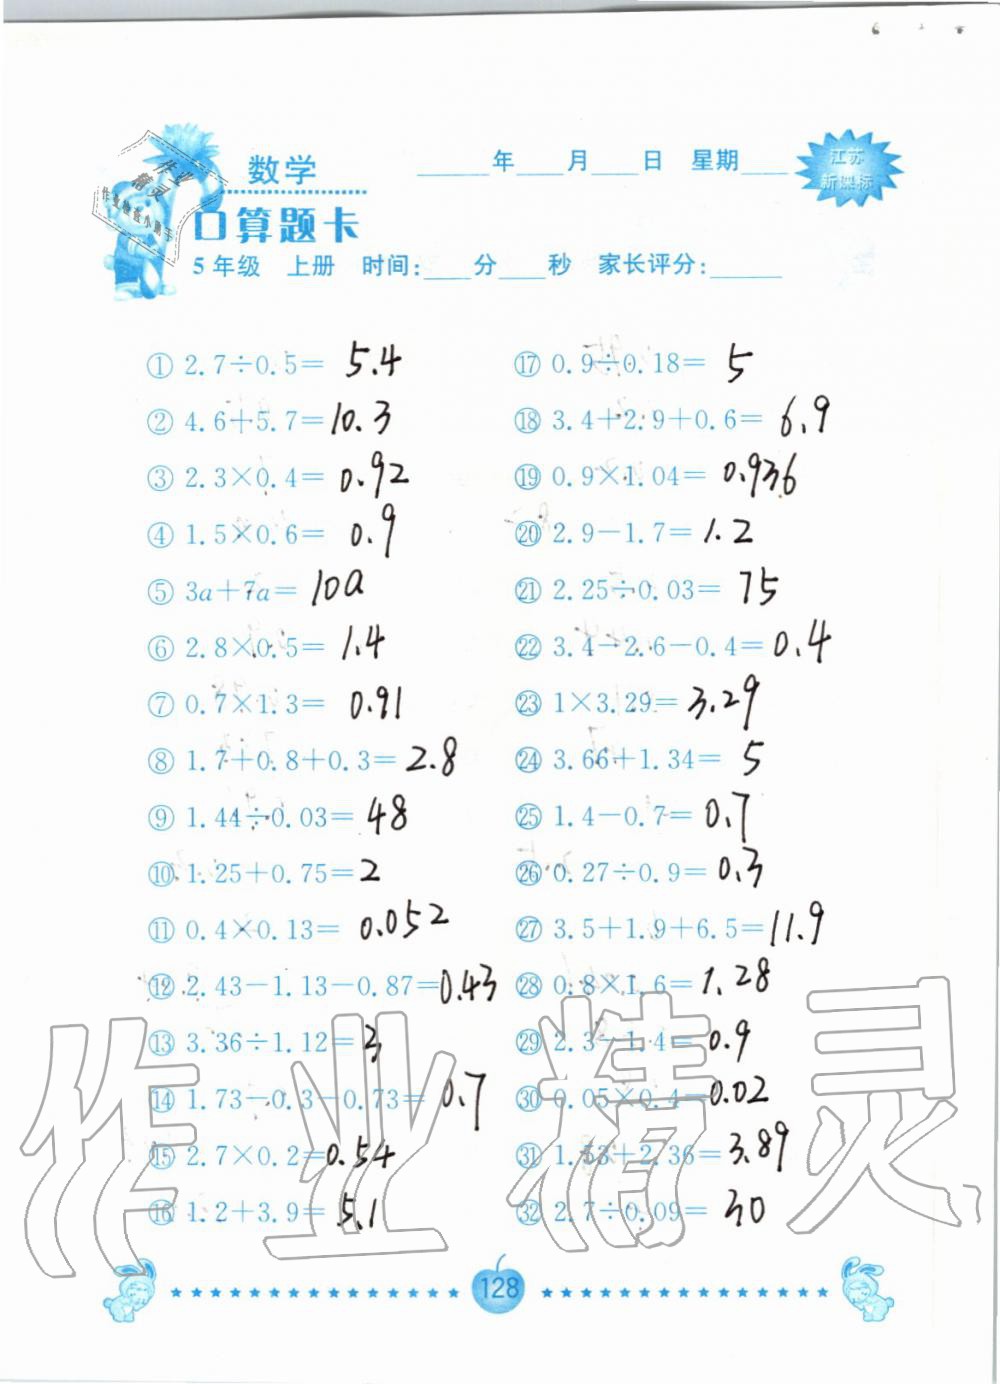 数学
____年____月____日 星期____
江苏
新课标
口算题卡
5年级 上册 时间:____分____秒 家长评分:____
作业
精灵
① 2.7÷0.5= 5.4
② 4.6+5.7= 10.3
③ 2.3×0.4= 0.92
④ 1.5×0.6= 0.9
⑤ 3a+7a= 10a
⑥ 2.8×0.5= 1.4
⑦ 0.7×1.3= 0.91
⑧ 1.7+0.8+0.3= 2.8
⑨ 1.44÷0.03= 48
⑩ 1.25+0.75= 2
⑪ 0.4×0.13= 0.052
⑫ 2.43-1.13-0.87= 0.43
⑬ 3.36÷1.12= 3
⑭ 1.73-0.3-0.73= 0.7
⑮ 2.7×0.2= 0.54
⑯ 1.2+3.9= 5.1
⑰ 0.9÷0.18= 5
⑱ 3.4+2.9+0.6= 6.9
⑲ 0.9×1.04= 0.936
⑳ 2.9-1.7= 1.2
㉑ 2.25÷0.03= 75
㉒ 3.4-2.6-0.4= 0.4
㉓ 1×3.29= 3.29
㉔ 3.66+1.34= 5
㉕ 1.4-0.7= 0.7
㉖ 0.27÷0.9= 0.3
㉗ 3.5+1.9+6.5= 11.9
㉘ 0.8×1.6= 1.28
㉙ 2.3-1.4= 0.9
㉚ 0.05×0.4= 0.02
㉛ 1.53+2.36= 3.89
㉜ 2.7÷0.09= 30
作业精灵
128